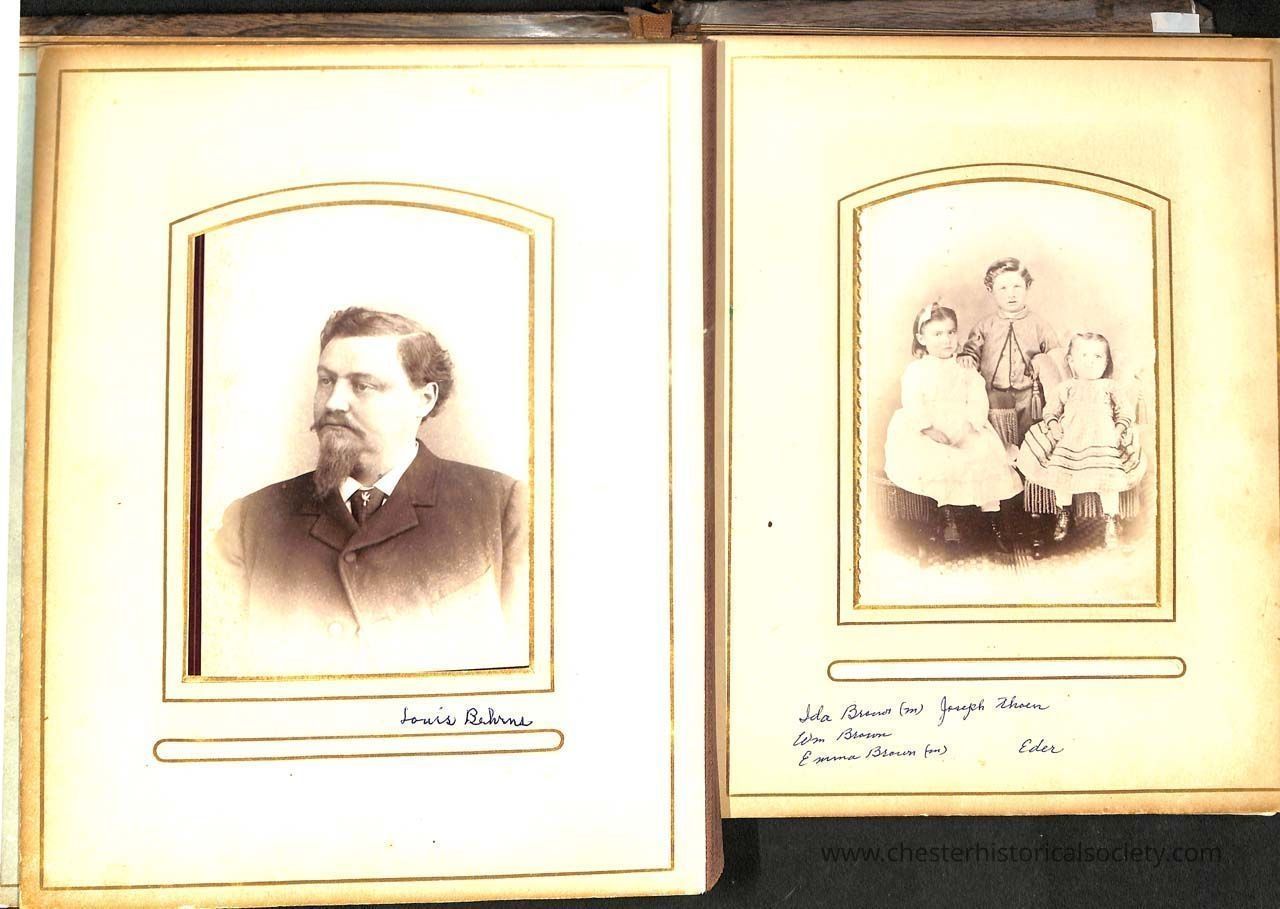 Louis Behrns
Ida Brown (m) Joseph Thoen
Wm Brown
Emma Brown (m) Eder
www.chesterhistoricalsociety.com